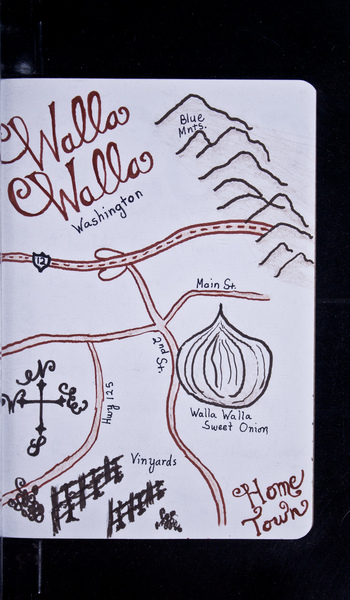 Walla
Walla
Washington
Blue
Mnts.
12
Main St.
2nd St.
Hwy 125
N
W
E
S
Walla Walla
Sweet Onion
Vinyards
Home
Town